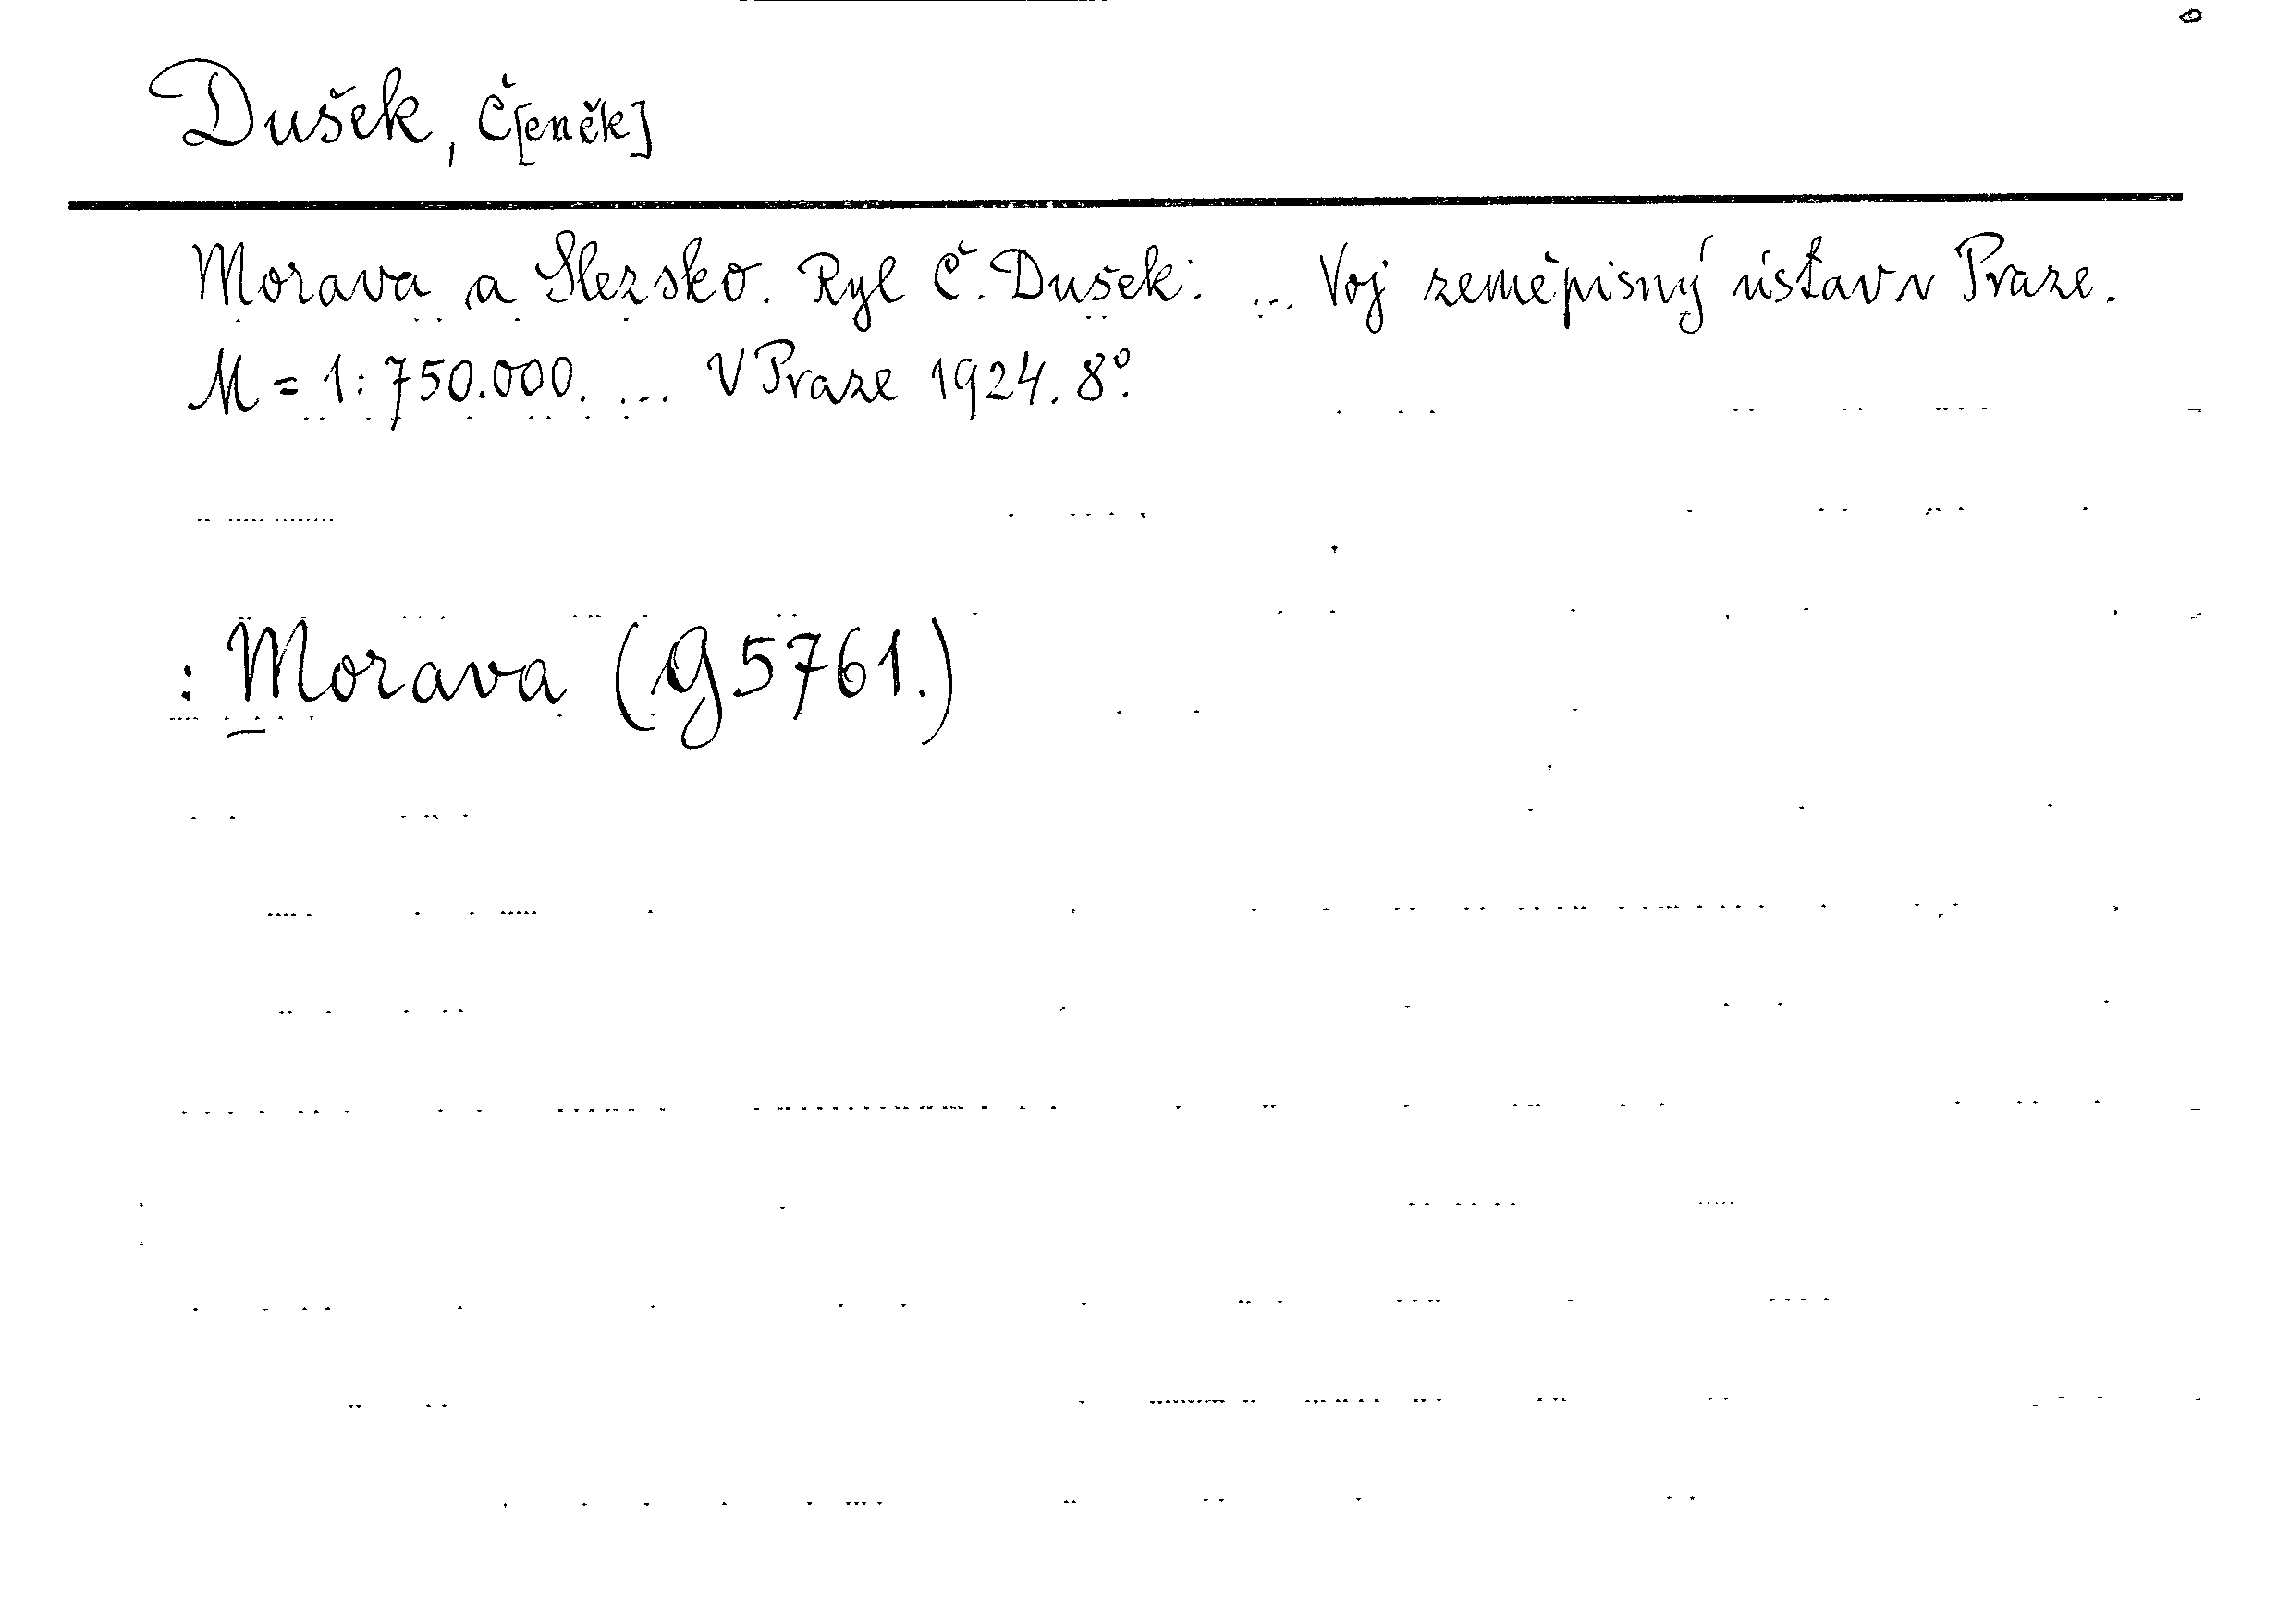 Dušek, Č[eněk]
Morava a Slezsko. Ryl Č. Dušek. ... Voj zeměpisný ústav v Praze.
M = 1:750.000. ... V Praze 1924. 8°.
: Morava (G5761.)